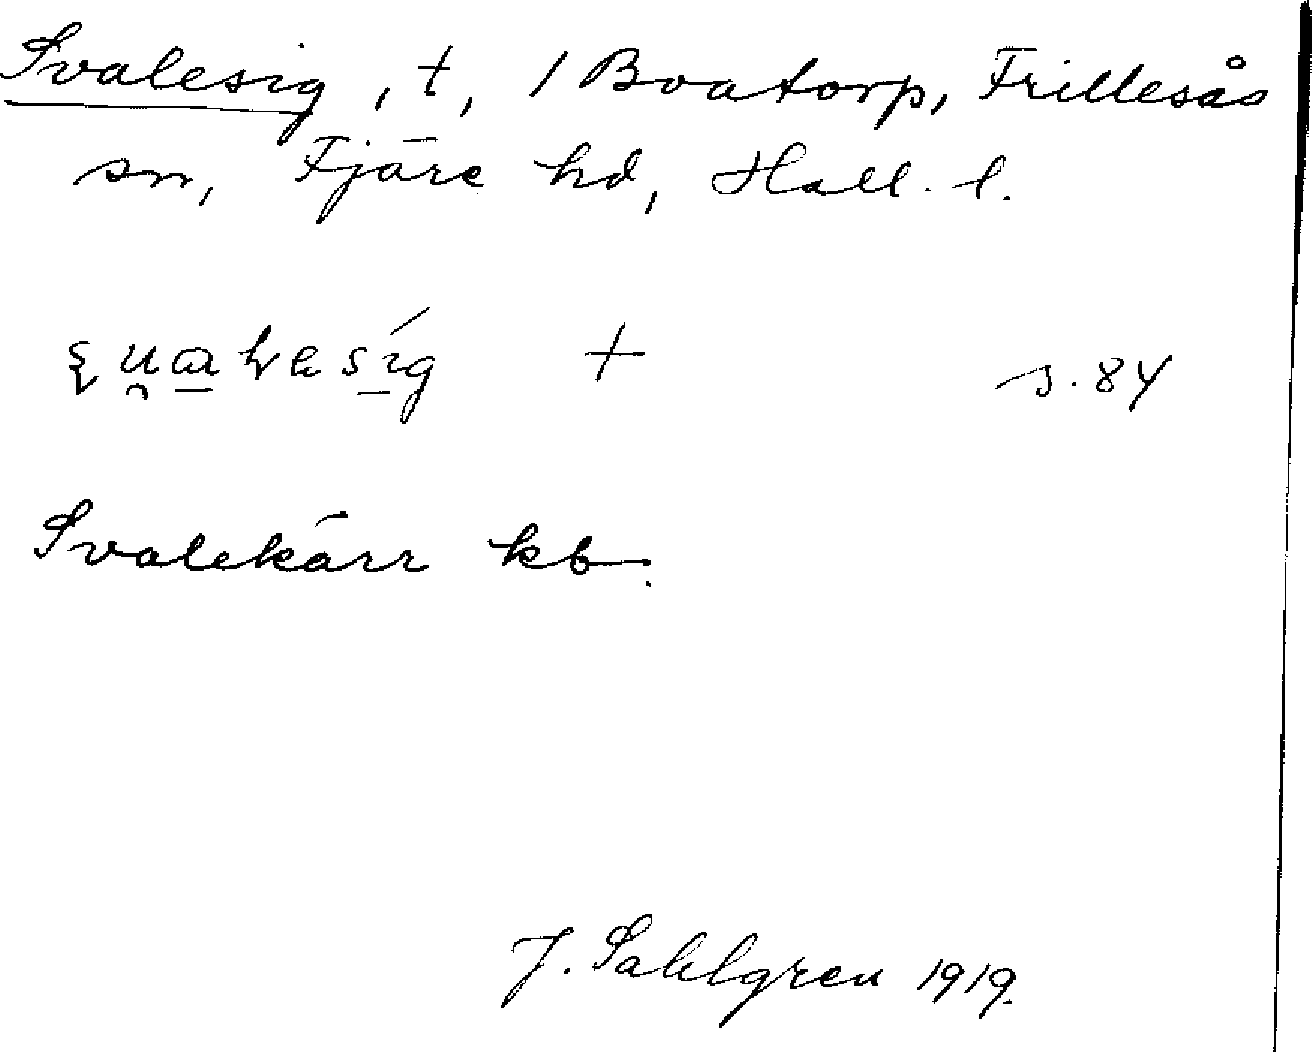 Svalesig, t, 1 Boatorp, Frillesås
sn, Fjäre hd, Hall. l.
+ s. 84
Svalekärr kb.
J. Sahlgren 1919.